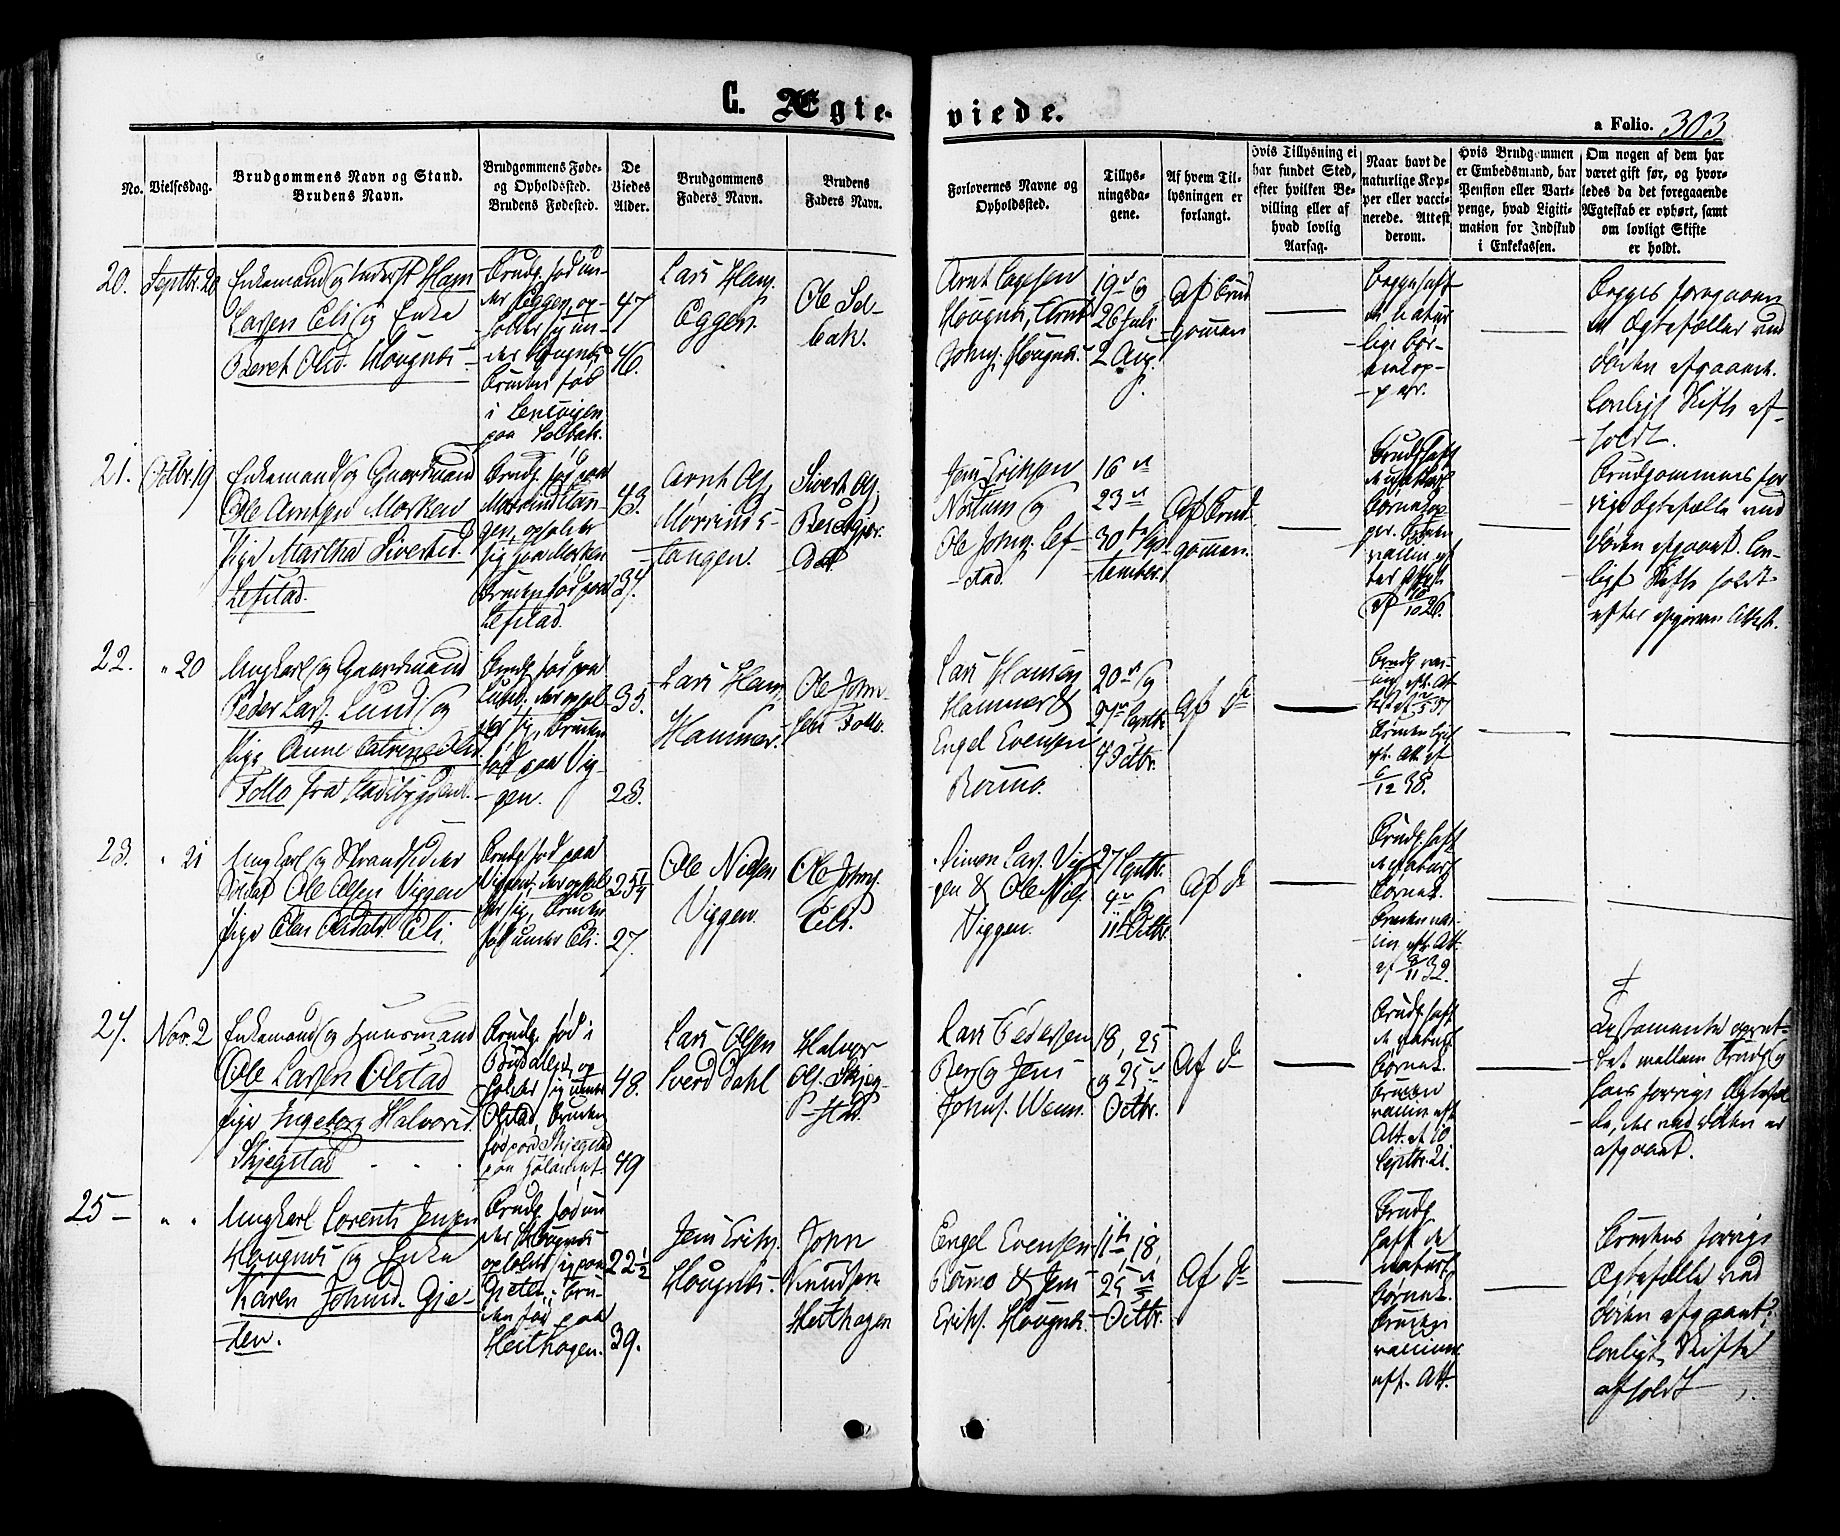 C. Ægte-
viede.
a Folio. 303
No.
Vielsesdag.
Brudgommens Navn og Stand.
Brudens Navn.
Brudgommens Føde-
og Opholdssted.
Brudens Fødested.
De
Viedes
Alder.
Brudgommens
Faders Navn.
Brudens
Faders Navn.
Forlovernes Navne og
Opholdssted.
Tillys-
ningsda-
gene.
Af hvem Til-
lysningen er
forlangt.
Hvis Tillysning ei
har fundet Sted,
efter hvilken Be-
villing eller af
hvad lovlig
Aarsag.
Naar havt de
naturlige Kop-
per eller vacci-
nerede. Attest
derom.
Hvis Brudgommen
er Embedsmand, har
Pension eller Vart-
penge, hvad Ligiti-
mation for Indskud
i Enkekassen.
Om nogen af dem har
været gift før, og hvor-
ledes da det foregaaende
Ægteskab er ophørt, samt
om lovligt Skifte
er holdt.
20.
Septbr. 20
Enkemand og Inderst Hans
Larsen Eli og Enke
Beret Olsd. Hougnes
Brudg. fød un-
der Eggen, op-
holder sig un-
der Hougnes
Bruden fød
i Lensvigen
paa Selbak.
47
46.
Lars Hans.
Eggen.
Ole Sel-
bak.
Arnt Larsen
Hougnes, Arnt
Johns. Hougnes.
19de og
26 Juli
2 Aug.
Af Brud-
gommen
Begge haft
de natur-
lige Bør-
nekop-
per.
Begges foregaaen-
de Ægtefæller ved
Døden afgaaet.
Lovligt Skifte af-
holdt.
21.
Octbr. 19
Enkemand og Gaardmand
Ole Arntsen Morken
Pige Martha Sivertsd.
Lefstad.
Bruden fød paa
Lefstad.
43.
34.
Arnt Ols.
tangen.
Sivert Ols.
Jens Eriksen
og
Ole Johns. Lef-
stad.
16de
23de
30te Sep-
tember.
Af Brud-
gommen.
Brudg. haft
de naturl.
Brudgommens for-
rige Ægtefælle ved
Døden afgaaet. Lov-
ligt Skifte holdt
efter afgiven Attest.
22.
" 20
Ungkarl og Gaardmand
Peder Lars. Lund og
Pige Anne Catrine Olsd.
Follo fra Stadsbygden.
Brudg. fød paa
Lund, der ophol-
der sig, Bruden
fød paa Vig-
gen.
33.
23.
Lars Hans.
Hammer.
Ole John-
sen Follo.
Lars Hansen
Hammer &
Engel Evensen
Rømo.
20de og
27de Septbr.
4 Octbr.
Af do
23.
" 21
Ungkarl og Strandsidder
Ole Olsen Viggen
Pige Elen Olsdatr. Eli.
Brudg. fød paa
Viggen, der ophol-
der sig, Bruden
fød under Eli.
25 1/4
27.
Ole Nilsen
Viggen.
Ole Johns.
Eli.
Simon Lars. Vig-
gen & Ole Nils.
Viggen.
27 Septbr.
4de og
11te Octbr.
Af do
Brudg. haft
de naturl.
Børnek.
24.
Nov. 2
Enkemand og Huusmand
Ole Larsen Olstad
Pige Ingeborg Halvorsd.
Skjegstad
Brudg. fød i
Budalen, op-
holder sig under
Olstad, Bruden
fød paa Skjegstad
paa Hølandet.
48.
49
Lars Olsen
Sverddahl
Halvor
Ols. Skjeg-
stad.
Lars Pedersen
Berg og Jens
Johns. Wenn.
18, 25
Octbr.
Af do
Brudg. haft
de naturl.
Børnek.
Bruden
vaccin. eft.
Att. af 10
Septbr. 21.
Testamente opret-
tet mellem Brudg. og
hans forrige Ægtefæl-
le, der ved Døden er
afgaaet.
25
" "
Ungkarl Lorents Jensen
Hougnes og Enke
Karen Johnsd. Gje-
ten.
Brudg. fød un-
der Hougnes
opholder sig paa
Gjeten, Bru-
den fød paa
Heithagen.
22 1/2
39.
Jens Eriks.
Hougnes.
John
Knudsen
Heithagen
Engel Evensen
Rømo & Jens
Eriks. Hougnes.
11te, 18,
25de
Octbr.
Af do
Brudg.
haft de
naturl.
Børnek.
Bruden
vaccin.
eft. Att.
Brudens forrige
Ægtefælle ved
Døden afgaaet,
Lovligt Skifte
afholdt.